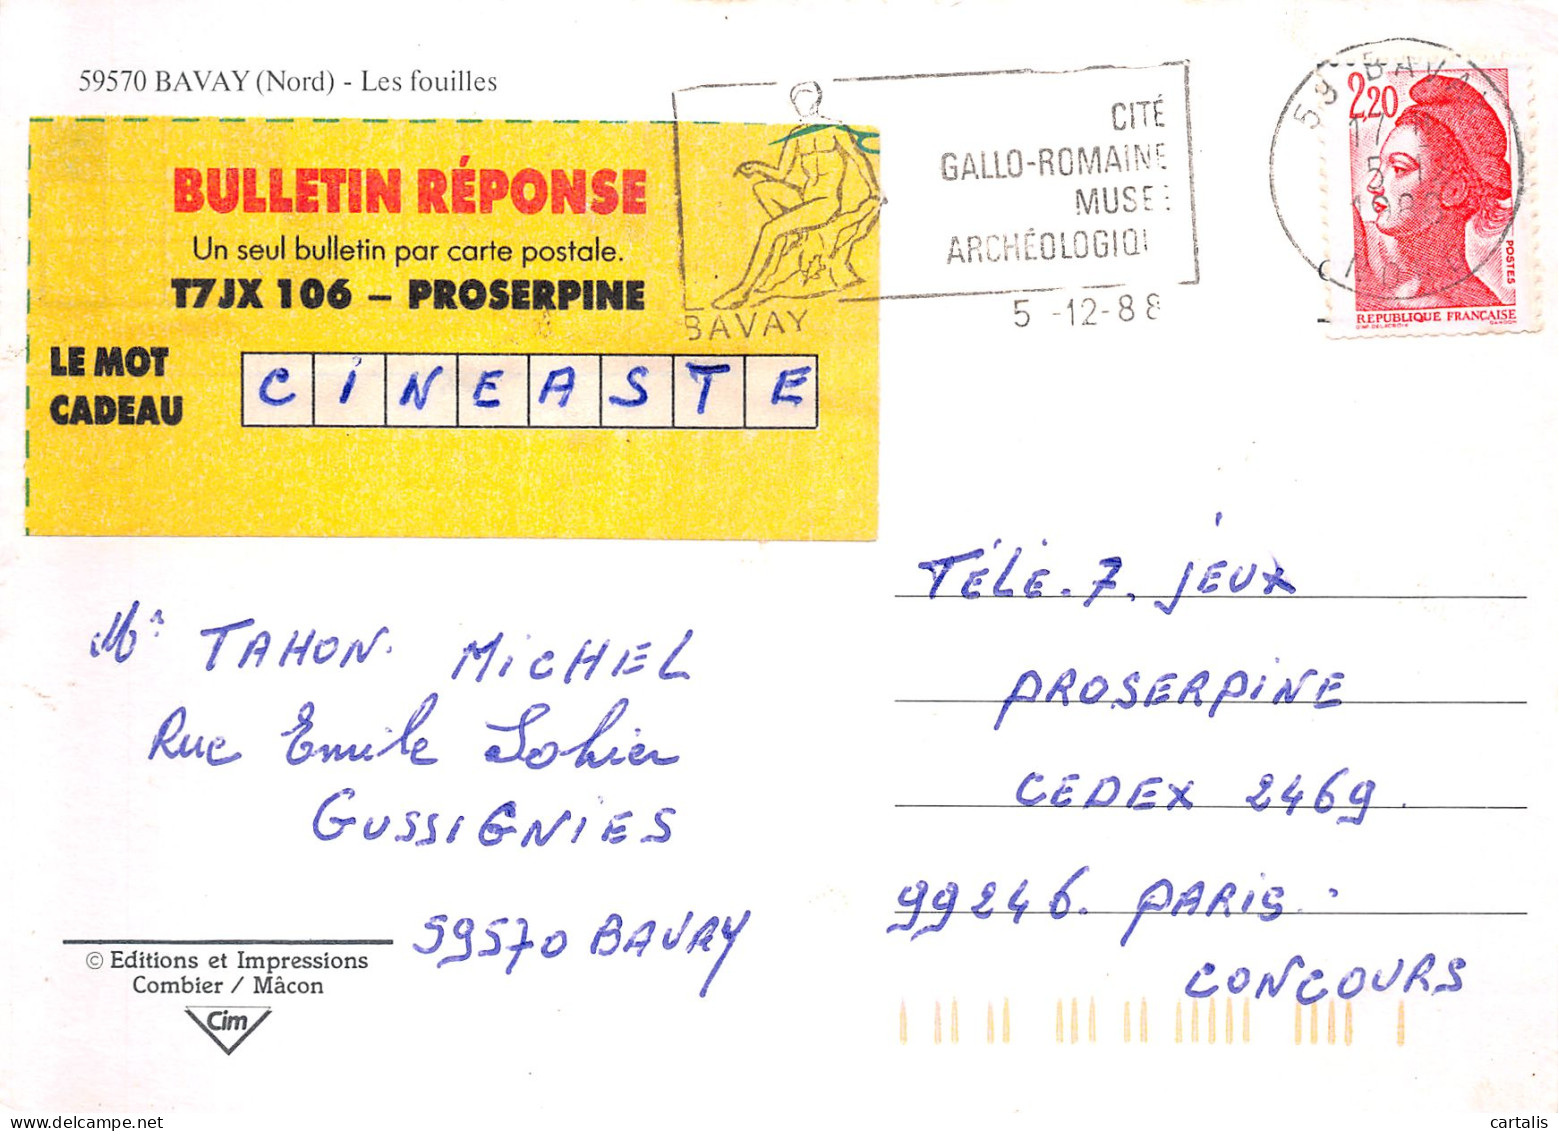 59570 BAVAY (Nord) - Les fouilles
BULLETIN RÉPONSE
Un seul bulletin par carte postale.
T7JX 106 – PROSERPINE
LE MOT
CADEAU
CINEASTE
CITÉ
GALLO-ROMAINE
MUSE
ARCHÉOLOGIQU
BAVAY
5 -12-88
59 BAVA
2,20
POSTES
REPUBLIQUE FRANÇAISE
Mr TAHON MICHEL
Rue Emile Lohier
GUSSIGNIES
59570 BAVAY
TÉLÉ.7.JEUX
PROSERPINE
CEDEX 2469.
99246. PARIS.
CONCOURS
© Editions et Impressions
Combier / Mâcon
Cim
cartalis